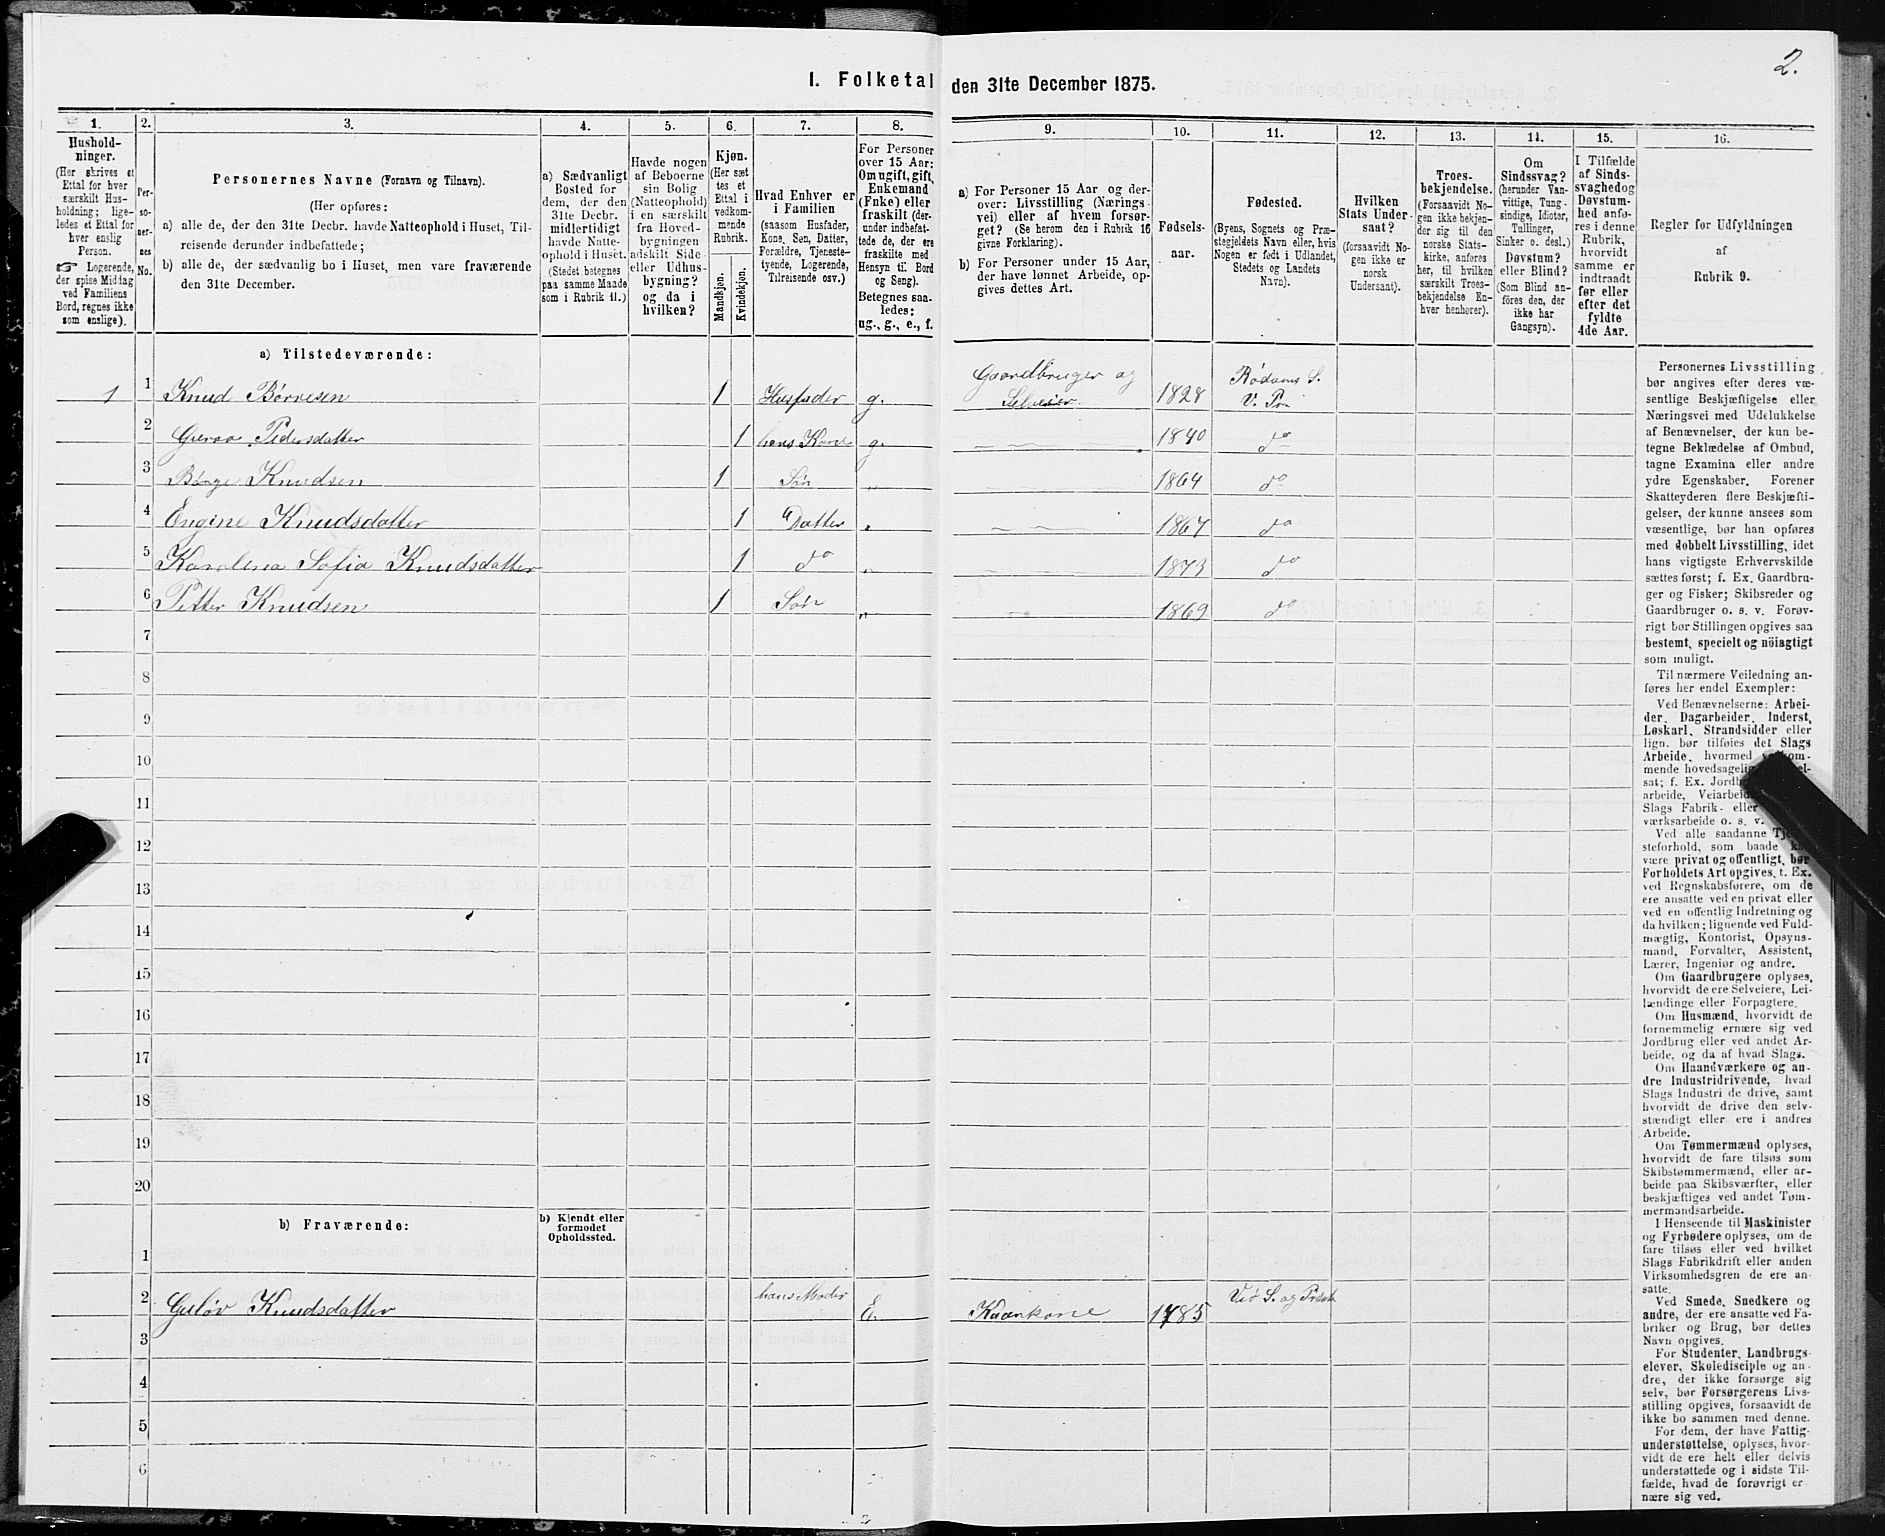 2.
1. Folketal den 31te December 1875.
1. 2. 3. 4. 5. 6. 7. 8. 9. 10. 11. 12. 13. 14. 15. 16.
Hushold-
ninger.
(Her skrives et
Ettal for hver
særskilt Hus-
holdning; lige-
ledes et Ettal for
hver enslig
Person.
☞ Logerende,
der spise Middag
ved Familiens
Bord, regnes ikke
som enslige).
Per-
so-
ner-
nes
No.
Personernes Navne (Fornavn og Tilnavn).
(Her opføres:
a) alle de, der den 31te Decbr. havde Natteophold i Huset, Til-
reisende derunder indbefattede;
b) alle de, der sædvanlig bo i Huset, men vare fraværende
den 31te December.
a) Sædvanligt
Bosted for
dem, der den
31te Decbr.
midlertidigt
havde Natte-
ophold i Huset.
(Stedet betegnes
paa samme Maade
som i Rubrik 11.)
Havde nogen
af Beboerne
sin Bolig
(Natteophold)
i en særskilt
fra Hoved-
bygningen
adskilt Side-
eller Udhus-
bygning?
og da i
hvilken?
Kjøn.
(Her sæt
tes et
Ettal i
vedkom-
mende
Rubrik.
Mandkjøn.
Kvindekjøn.
Hvad Enhver er
i Familien
(saasom Husfader,
Kone, Søn, Datter,
Forældre, Tjeneste-
tyende, Logerende,
Tilreisende osv.)
For Personer
over 15 Aar:
Om ugift, gift,
Enkemand
(Enke) eller
fraskilt (der-
under indbefat-
tede de, der ere
fraskilte med
Hensyn til Bord
og Seng).
Betegnes saa-
ledes:
ug., g., e., f.
a) For Personer 15 Aar og der-
over: Livsstilling (Nærings-
vei) eller af hvem forsør-
get? (Se herom den i Rubrik 16
givne Forklaring).
b) For Personer under 15 Aar,
der have lønnet Arbeide, op-
gives dettes Art.
Fødsels-
aar.
Fødested.
(Byens, Sognets og Præ-
stegjeldets Navn eller, hvis
Nogen er født i Udlandet,
Stedets og Landets
Navn).
Hvilken
Stats Under-
saat?
(forsaavidt No-
gen ikke er
norsk
Undersaat).
Troes-
bekjendelse.
(Forsaavidt No-
gen ikke bekjen-
der sig til den
norske Stats-
kirke, anføres
her, til hvilken
særskilt Troes-
bekjendelse En-
hver henhører).
Om
Sindssvag?
(herunder Van-
vittige, Tung-
sindige, Idioter,
Tullinger,
Sinker o. desl.)
Døvstum?
eller Blind?
(Som Blind an-
føres den, der
ikke har
Gangsyn).
I Tilfælde
af Sinds-
svaghedog
Døvstum-
hed anfø-
res i denne
Rubrik,
hvorvidt
samme er
indtraadt
før eller
efter det
fyldte
4de Aar.
Regler for Udfyldningen
af
Rubrik 9.
a) Tilstedeværende:
1 1 Knud Børresen 1 Husfader g. Gaardbruger og Selveier 1828 S. V. Pr
2 Pedersdatter 1 hans Kone g. 1840 do
3 Børge Knudsen 1 Søn „ 1864 do
4 Engine Knudsdatter 1 Datter „ 1867 do
5 Karolena Sofia Knudsdatter 1 do „ 1873 do
6 Petter Knudsen 1 Søn „ 1869 do
7
8
9
10
11
12
13
14
15
16
17
18
19
20
b) Fraværende:
b) Kjendt eller
formodet
Opholdssted.
1
2 Guløv Knudsdatter hans Moder E. Kaarkone 1785 S. og Præst
3
4
5
6
Personernes Livsstilling
bør angives efter deres væ-
sentlige Beskjæftigelse eller
Næringsvei med Udelukkelse
af Benævnelser, der kun be-
tegne Beklædelse af Ombud,
tagne Examina eller andre
ydre Egenskaber. Forener
Skatteyderen flere Beskjæfti-
gelser, der kunne ansees som
væsentlige, bør han opføres
med dobbelt Livsstilling, idet
hans vigtigste Erhvervskilde
sættes først; f. Ex. Gaardbru-
ger og Fisker; Skibsreder og
Gaardbruger o. s. v. Forøv-
rigt bør Stillingen opgives saa
bestemt, specielt og nöiagtigt
som muligt.
Til nærmere Veiledning an-
føres her endel Exempler:
Ved Benævnelserne: Arbei-
der, Dagarbeider, Inderst,
Løskarl, Strandsidder eller
lign. bør tilføies det Slags
Arbeide, hvormed
mende hovedsagelig
sat; f. Ex.
arbeide,
Slags Fabrik- eller
værksarbeide o. s. v.
Ved alle saadanne
steforhold, som baade
være privat og offentligt, bør
Forholdets Art opgives, f. Ex.
ved Regnskabsførere, om de
ere ansatte ved en privat eller
ved en offentlig Indretning og
da hvilken; lignende ved Fuld-
mægtig, Kontorist, Opsyns-
mand, Forvalter, Assistent,
Lærer, Ingeniør og andre.
Om Gaardbrugere oplyses,
hvorvidt de ere Selveiere, Lei-
lændinge eller Forpagtere.
Om Husmænd, hvorvidt de
fornemmelig ernære sig ved
Jordbrug eller ved andet Ar-
beide, og da af hvad Slags.
Om Haandværkere og an-
dre Industridrivende, hvad
Slags Industri de drive, samt
hvorvidt de drive den selv-
stændigt eller ere i andres
Arbeide.
Om Tømmermænd oplyses,
hvorvidt de fare tilsøs som
Skibstømmermænd, eller ar-
beide paa Skibsværfter, eller
beskjæftiges ved andet Tøm-
mermandsarbeide.
I Henseende til Maskinister
og Fyrbødere oplyses, om de
fare tilsøs eller ved hvilket
Slags Fabrikdrift eller anden
Virksomhedsgren de ere an-
satte.
Ved Smede, Snedkere og
andre, der ere ansatte ved Fa-
briker og Brug, bør dettes
Navn opgives.
For Studenter, Landbrugs-
elever, Skoledisciple og an-
dre, der ikke forsørge sig
selv, bør Forsørgerens Livs-
stilling opgives, forsaavidt de
ikke bo sammen med denne.
For dem, der have Fattig-
understøttelse, oplyses, hvor-
vidt de ere helt eller delvis
understøttede og i sidste Til-
fælde, hvad de forøvrigt er-
nære sig ved.